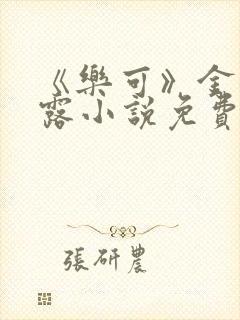 《樂可》金
露小說免費
張研農